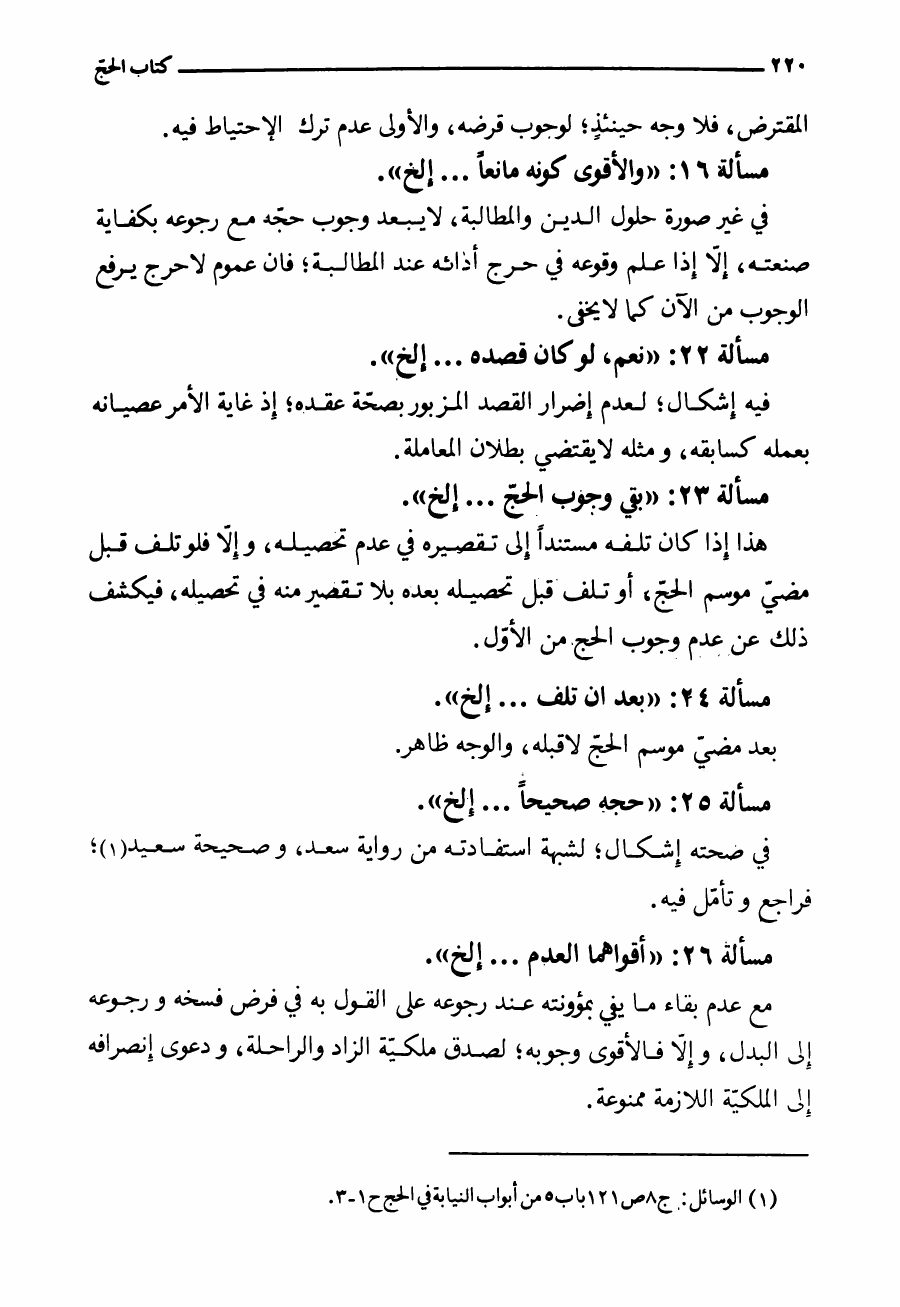 ٢٢٠ كتاب الحجّ
المقترض، فلا وجه حينئذٍ؛ لوجوب قرضه، والأولى عدم ترك الإحتياط فيه.
مسألة ١٦: «والأقوى كونه مانعاً ... إلخ».
في غير صورة حلول الدين والمطالبة، لايبعد وجوب حجّه مع رجوعه بكفاية
صنعته، إلّا إذا علم وقوعه في حرج أدائه عند المطالبة؛ فان عموم لاحرج يرفع
الوجوب من الآن كما لايخفى.
مسألة ٢٢: «نعم، لو كان قصده ... إلخ».
فيه إشكال؛ لعدم إضرار القصد المزبور بصحّة عقده؛ إذ غاية الأمر عصيانه
بعمله كسابقه، و مثله لايقتضي بطلان المعاملة.
مسألة ٢٣: «بقي وجوب الحجّ ... إلخ».
هذا إذا كان تلفه مستنداً إلى تقصيره في عدم تحصيله، و إلّا فلو تلف قبل
مضيّ موسم الحجّ، أو تلف قبل تحصيله بعده بلا تقصير منه في تحصيله، فيكشف
ذلك عن عدم وجوب الحج من الأوّل.
مسألة ٢٤: «بعد ان تلف ... إلخ».
بعد مضيّ موسم الحجّ لاقبله، والوجه ظاهر.
مسألة ٢٥: «حجه صحيحاً ... إلخ».
في صحته إشكال؛ لشبهة استفادته من رواية سعد، و صحيحة سعيد(١)؛
فراجع و تأمّل فيه.
مسألة ٢٦: «أقواهما العدم ... إلخ».
مع عدم بقاء ما يفي بمؤونته عند رجوعه على القول به في فرض فسخه و رجوعه
إلى البدل، و إلّا فالأقوى وجوبه؛ لصدق ملكيّة الزاد والراحلة، و دعوى إنصرافه
إلى الملكيّة اللازمة ممنوعة.
(١) الوسائل: ج٨ص١٢١باب٥من أبواب النيابة في الحج ح١-٣.